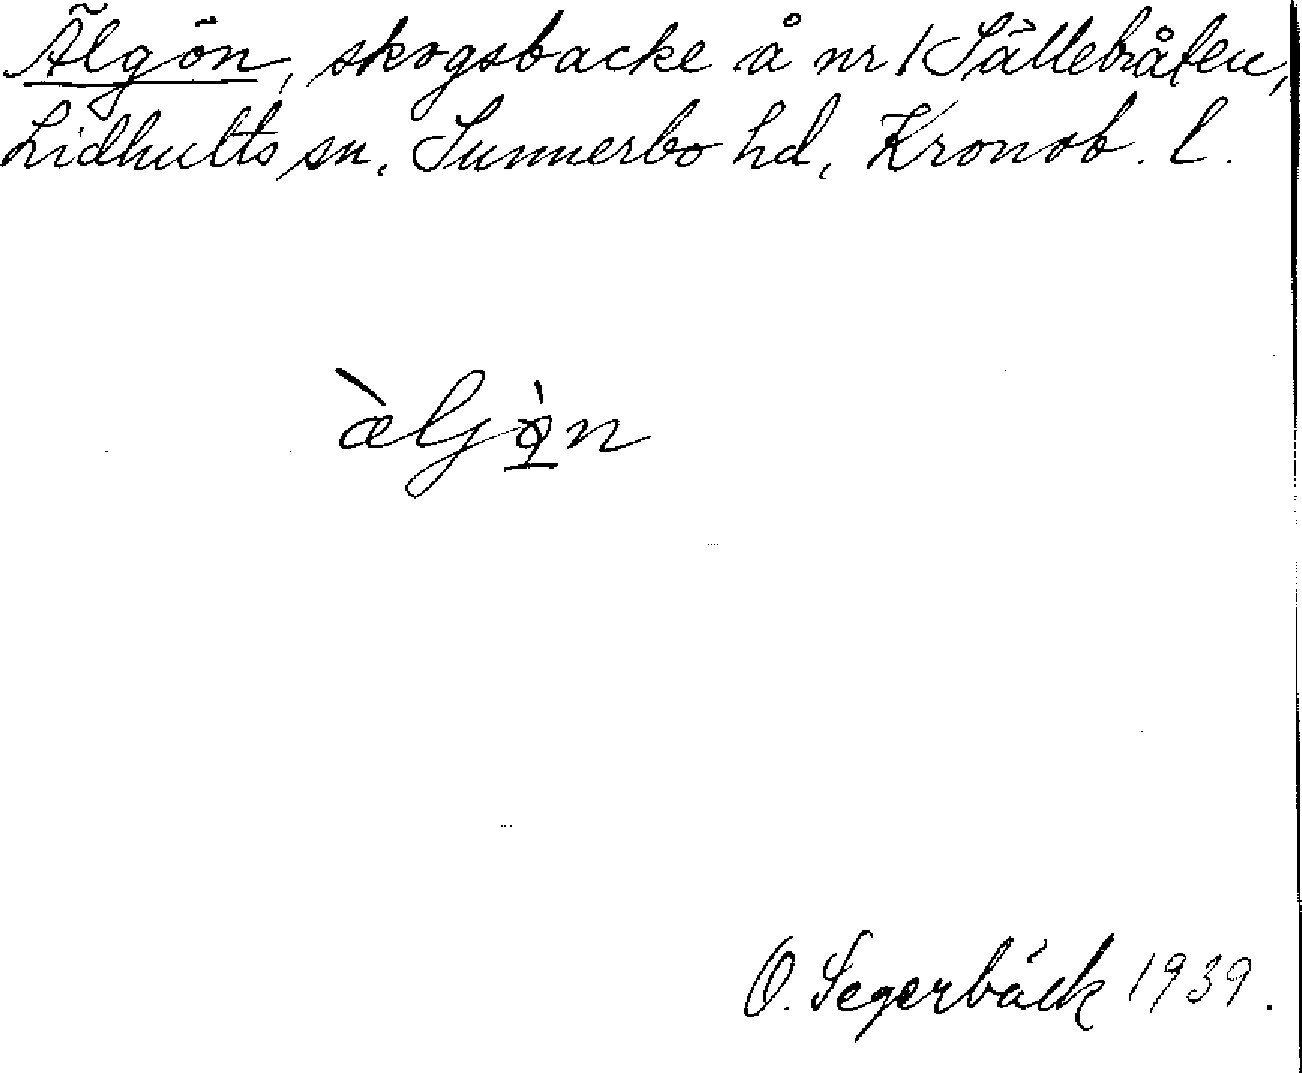 Älgön, skogsbacke å nr 1 Sällebråten,
Lidhults sn, Sunnerbo hd, Kronob. l.
æljøn
O. Segerbäck 1939.